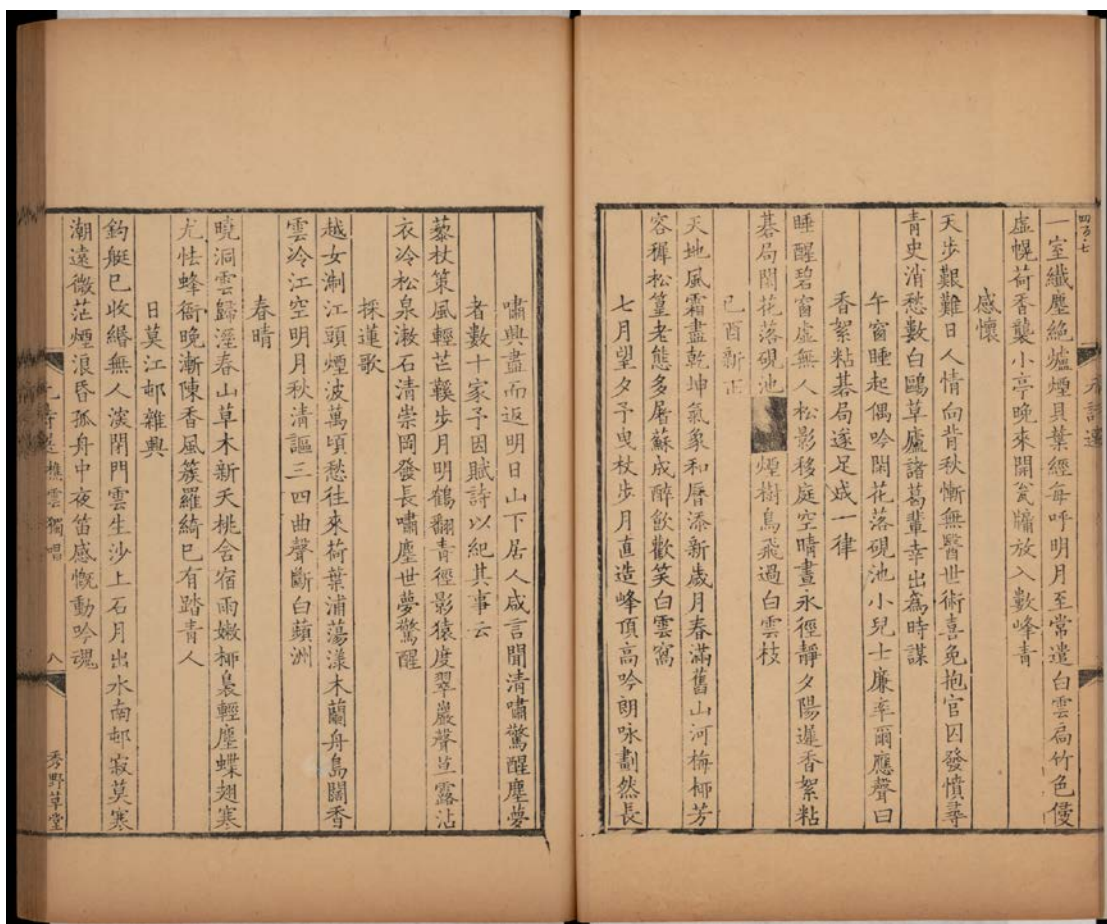 元詩選
一室纖塵絶爐煙貝葉經每呼明月至常遣白雲扃竹色侵
虛幌荷香襲小亭晚來開瓮牖放入數峰青
感懷
天步艱難日人情向背秋慚無醫世術喜免抱官囚發憤尋
青史消愁數白鷗草廬諸葛輩幸出為時謀
午窗睡起偶吟閑花落硯池小兒士廉率爾應聲曰
香絮粘碁局遂足成一律
睡醒碧窗虛無人松影移庭空晴晝永徑靜夕陽遲香絮粘
碁局閑花落硯池煙樹鳥飛過白雲枝
己酉新正
天地風霜盡乾坤氣象和曆添新歲月春滿舊山河梅柳芳
容穉松篁老態多屠蘇成醉飲歡笑白雲窩
七月望夕予曳杖步月直造峰頂高吟朗咏劃然長
嘯興盡而返明日山下居人咸言聞清嘯驚醒塵夢
者數十家予因賦詩以紀其事云
藜杖策風輕芒鞵步月明鶴翻青徑影猿度翠巖聲草露沾
衣冷松泉漱石清崇岡發長嘯塵世夢驚醒
採蓮歌
越女淛江頭煙波萬頃愁往來荷葉浦蕩漾木蘭舟島闊香
雲冷江空明月秋清謳三四曲聲斷白蘋洲
春晴
曉洞雲歸溼春山草木新夭桃含宿雨嫩柳裊輕塵蝶翅寒
尤怯蜂衙晚漸陳香風簇羅綺已有踏青人
日莫江邨雜興
釣艇已收緡無人淡閉門雲生沙上石月出水南邨寂莫寒
潮遠微茫煙浪昏孤舟中夜笛感慨動吟魂
元詩選樵雲獨唱
八
秀野草堂